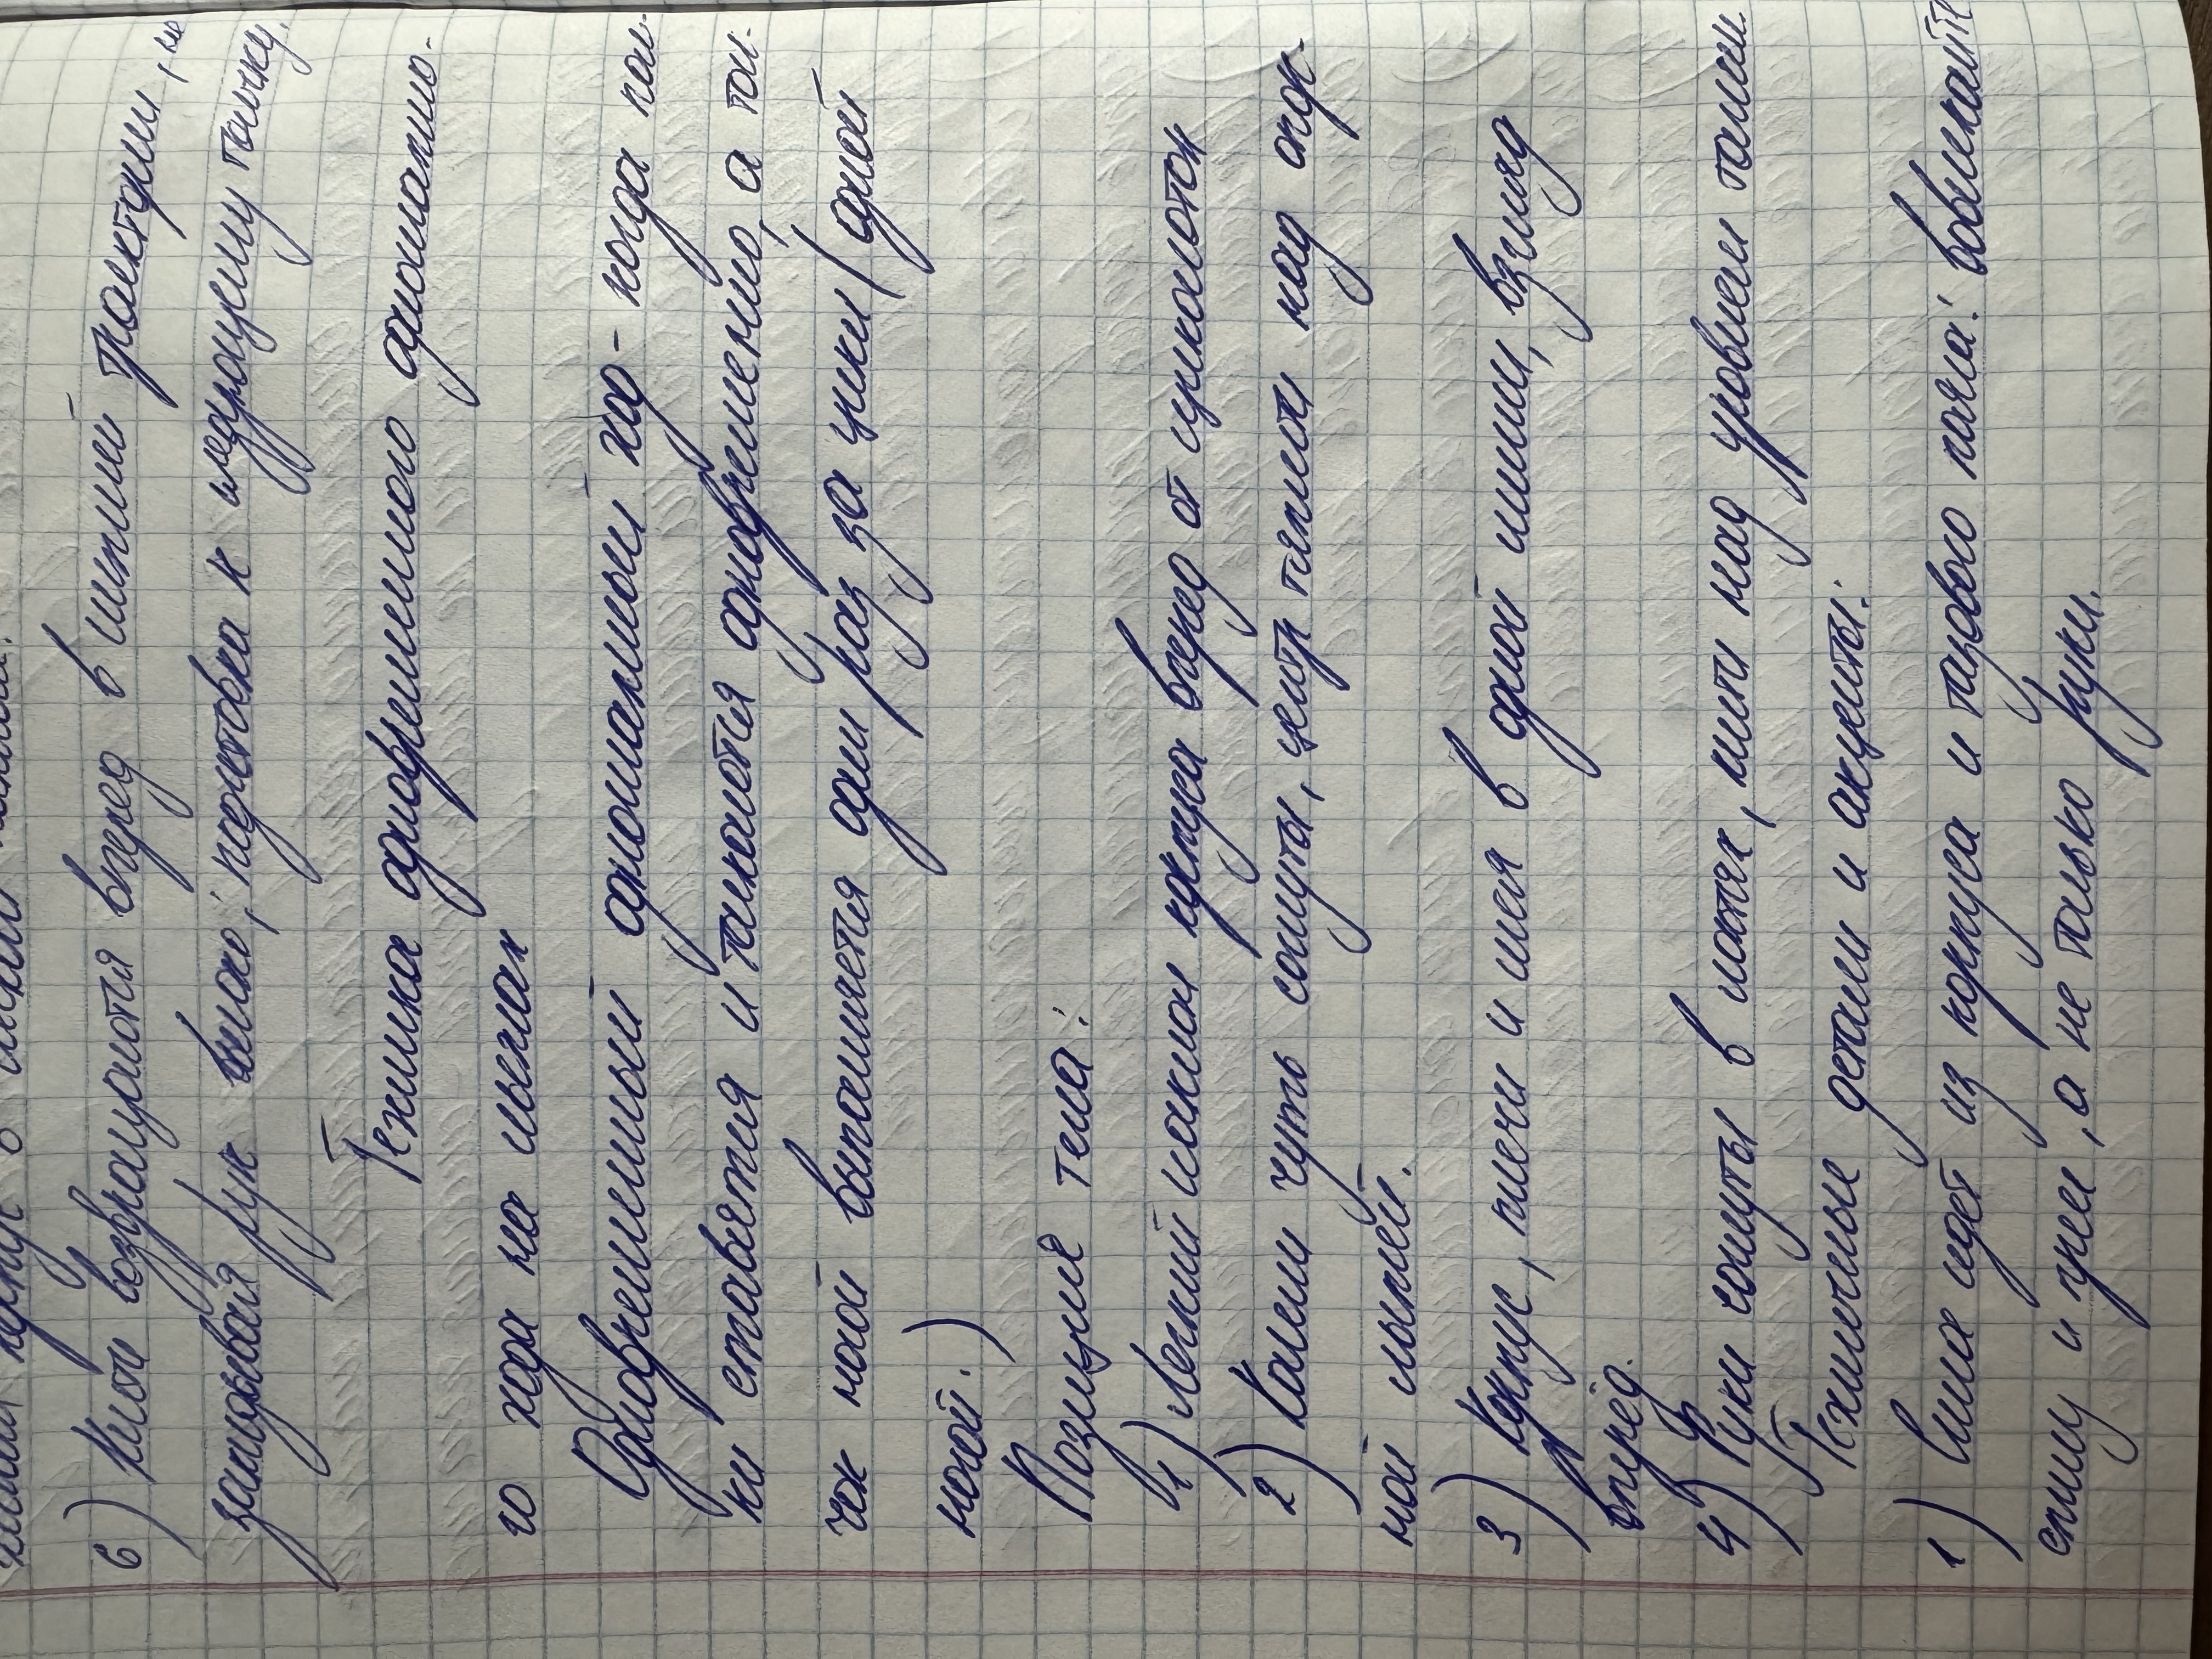 6) Кисти возвращаются вперед в линии траектории, не
закидывая рук высоко; подготовка к следующему толчку.
Техника одновременного одношажно-
го хода на лыжах
Одновременный одношажный ход - когда пал-
ки ставятся и толкаются одновременно, а тол-
чок ногой выполняется один раз за цикл (одной
ногой.)
Позиция тела:
1) Легкий наклон корпуса вперед от щиколоток
2) Колени чуть согнуты, центр тяжести над опор-
ной лыжей.
3) Корпус, плечи и шея в одной линии, взгляд
вперёд.
4) Руки согнуты в локтях, кисти над уровнем талии.
Техничные детали и акценты:
1) Сила идёт из корпуса и тазового пояса: вовлекайте
спину и пресс, а не только руки.